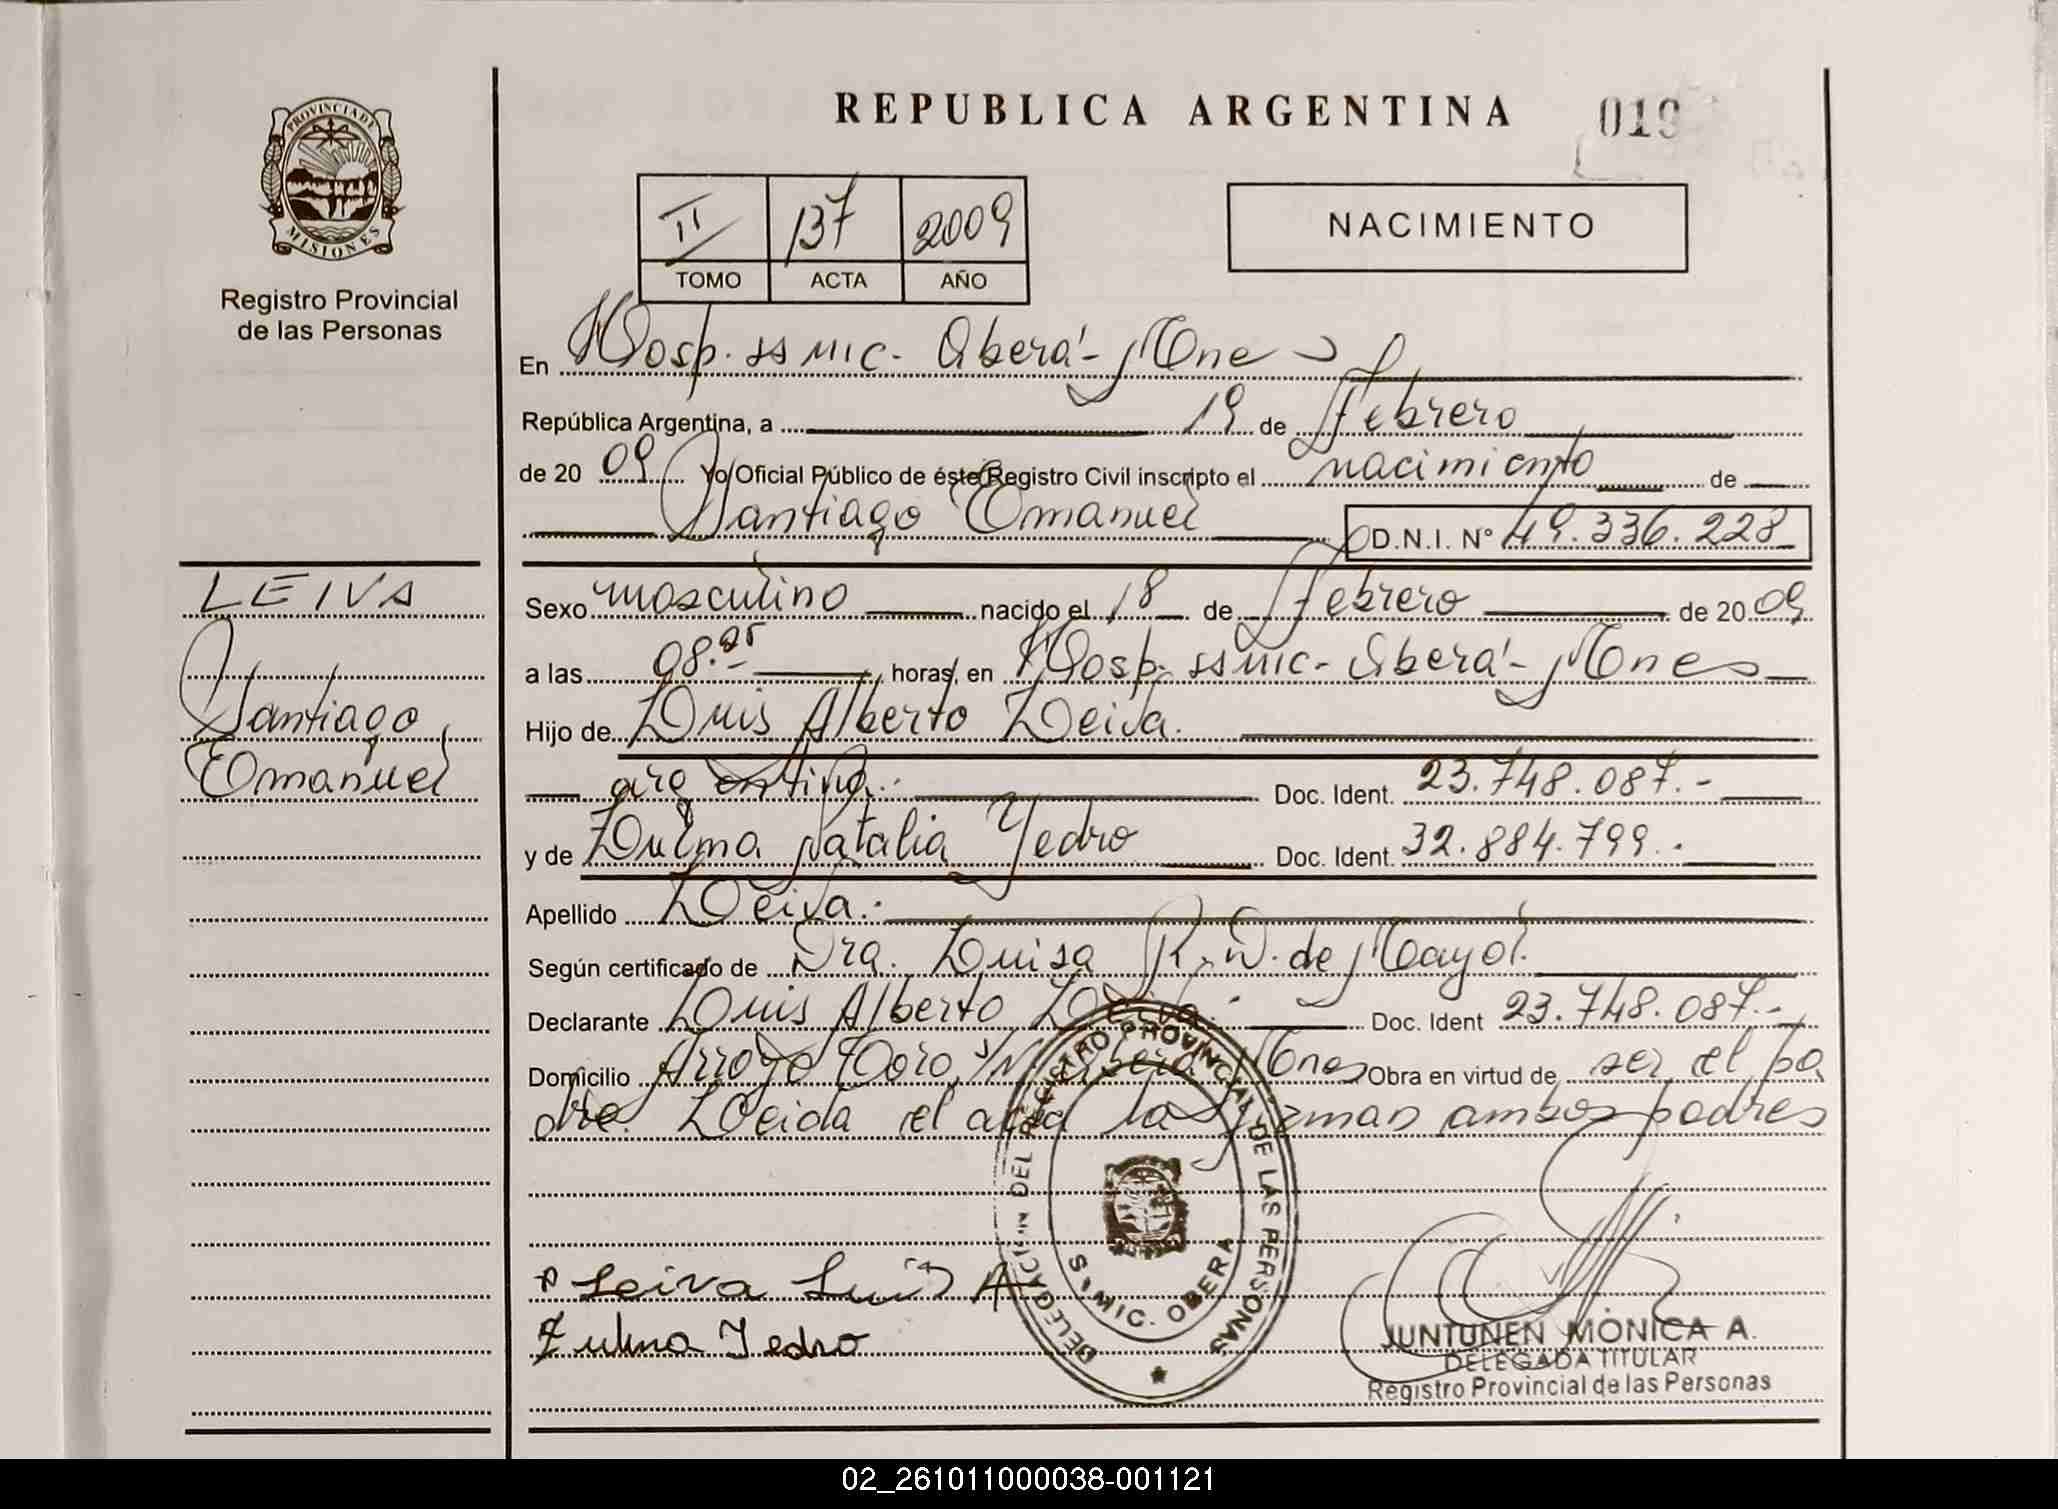 REPUBLICA ARGENTINA
019
PROVINCIA DE
MISIONES
Registro Provincial
de las Personas
II 137 2009
TOMO ACTA AÑO
NACIMIENTO
En Hosp. SSMIC- Oberá- Mnes
República Argentina, a 19 de Febrero
de 2009 Yo Oficial Público de éste Registro Civil inscripto el nacimiento de
Santiago Emanuel D.N.I. N° 49.336.228
LEIVA
Santiago
Emanuel
Sexo masculino nacido el 18 de Febrero de 2009
a las 08. horas, en Hosp. SSMIC- Oberá- Mnes
Hijo de Luis Alberto Leiva.
argentino.- Doc. Ident. 23.748.087.-
y de Zulma Natalia Yedro Doc. Ident. 32.884.799.-
Apellido Leiva.-
Según certificado de Dra. Luisa R. de Mayol.
Declarante Luis Alberto Leiva.- Doc. Ident 23.748.087.-
Domicilio Arroyo Toro Oberá Mnes Obra en virtud de ser el pa
dre. Leida el acta la firman ambos padres
Leiva Luis A
Zulma Yedro
DELEGACION DEL REGISTRO PROVINCIAL DE LAS PERSONAS
S.S.MIC. OBERA
JUNTUNEN MONICA A.
DELEGADA TITULAR
Registro Provincial de las Personas
02_261011000038-001121